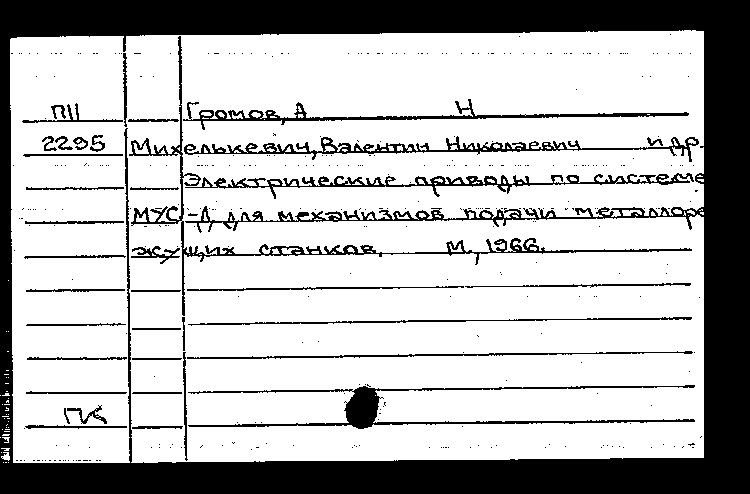 П11 Громов, А Н
2295 Михелькевич, Валентин Николаевич и др.
Электрические приводы по системе
МУС-Д для механизмов подачи металлоре
жущих станков. М., 1966.
ПК